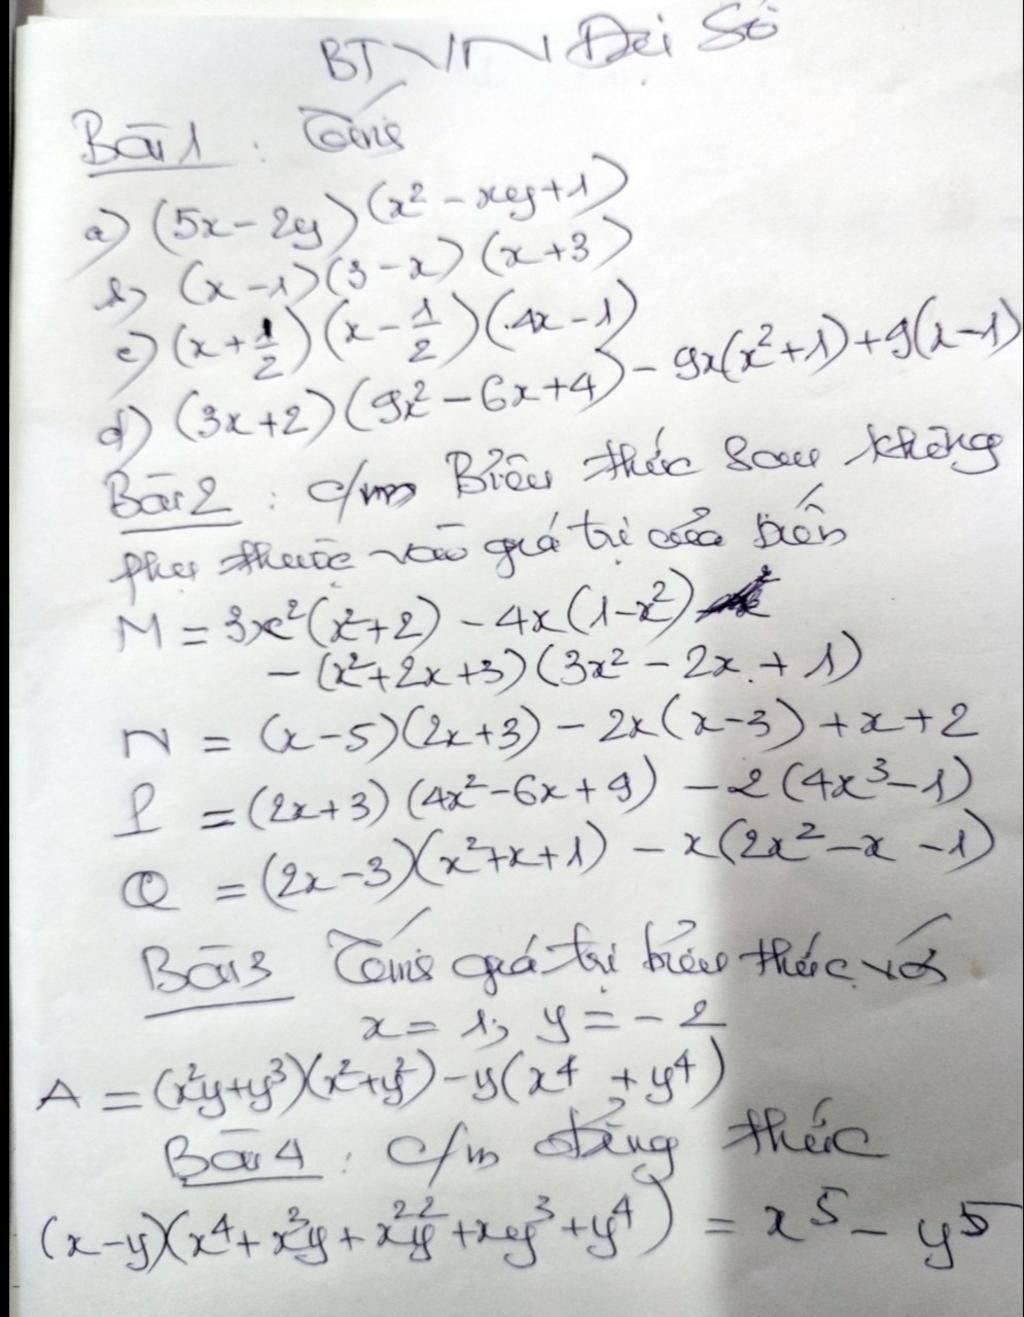 BTVN Đại Số
Bài 1 : Tính
a) (5x - 2y)(x² - xy + 1)
b) (x - 1)(3 - x)(x + 3)
c) (x + 1/2)(x - 1/2)(4x - 1)
d) (3x + 2)(9x² - 6x + 4) - 9x(x² + 1) + 9(x - 1)
Bài 2 : c/m Biểu thức sau không
phụ thuộc vào giá trị của biến
M = 3x²(x² + 2) - 4x(1 - x²)
- (x² + 2x + 3)(3x² - 2x + 1)
N = (x - 5)(2x + 3) - 2x(x - 3) + x + 2
P = (2x + 3)(4x² - 6x + 9) - 2(4x³ - 1)
Q = (2x - 3)(x² + x + 1) - x(2x² - x - 1)
Bài 3 Tính giá trị biểu thức với
x = 1; y = - 2
A = (x²y + y³)(x² + y²) - y(x⁴ + y⁴)
Bài 4 : c/m đẳng thức
(x - y)(x⁴ + x³y + x²y² + xy³ + y⁴) = x⁵ - y⁵